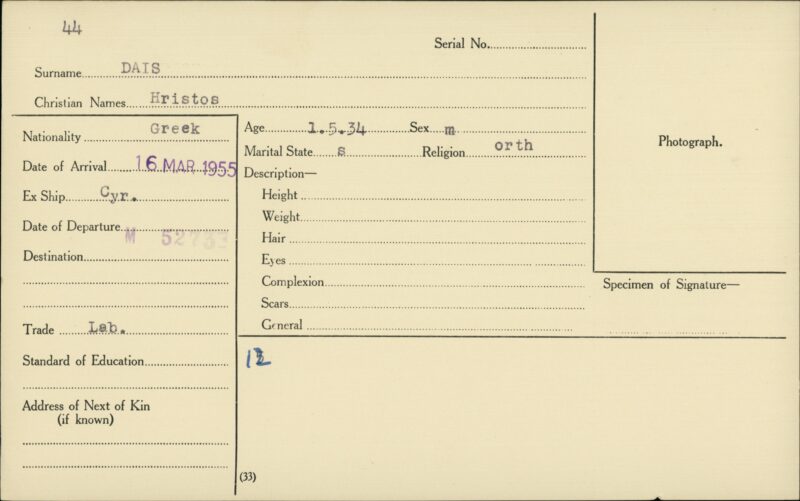 44
Serial No.
Surname DAIS
Christian Names Hristos
Nationality Greek
Date of Arrival 16 MAR 1955
Ex Ship Cyr.
Date of Departure
M 52733
Destination
Trade Lab.
Standard of Education
Address of Next of Kin
(if known)
Age 1.5.34 Sex m
Marital State s Religion orth
Description—
Height
Weight
Hair
Eyes
Complexion
Scars
General
12
(33)
Photograph.
Specimen of Signature—